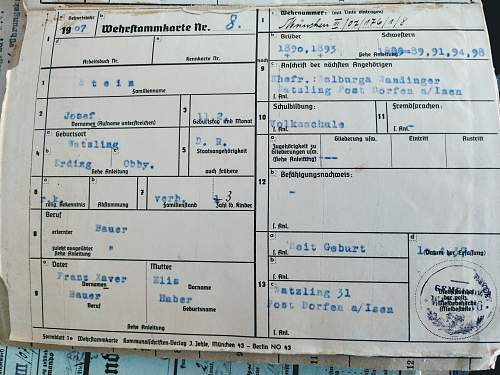 Geburtsjahr
1907
Wehrstammkarte Nr. 8.
a Arbeitsbuch Nr.
b Kennkarte Nr.
1 Stein
Familienname
2 Josef
Vornamen (Rufname unterstreichen)
3 11.2.
Geburtstag und Monat
4 a Geburtsort
Watzling
b Erding c Obby.
Siehe Anleitung
5 D. R.
Staatsangehörigkeit
auch frühere
6 a r.k.
relig. Bekenntnis
b Abstammung
7 a verh.
Familienstand
b 3
Zahl lb. Kinder
8 Beruf
a erlernter Bauer
b zuletzt ausgeübter "
Siehe Anleitung
9 a Vater
Franz Xaver
Vornamen
Bauer
Beruf
b Mutter
Elis
Vorname
Haber
Geburtsname
Siehe Anleitung
Formblatt 1a Wehrstammkarte Kommunalschriften-Verlag J. Jehle, München 43 – Berlin NO 43
1 Wehrnummer: (mit Tinte eintragen)
München
a Brüder
1890, 1893
+ +
b Schwestern
89, 91, 94, 98
Siehe Anleitung
noch 9
c Anschrift der nächsten Angehörigen
Ehefr. Walburga Wandinger
Watzling Post Dorfen a/Isen
f. Anl.
10 Schulbildung:
Volksschule
f. Anl.
11 Fremdsprachen:
-
f. Anl.
12 a Zugehörigkeit zu Gliederungen usw. (Siehe Anleitung)
Gliederung usw.
Eintritt
Austritt
b Befähigungsnachweis:
-
f. Anl.
13 a Seit Geburt
f. Anl.
d
(Datum der Erfassung)
c Watzling 31
Post Dorfen a/Isen
f. Anl.
Dienststempel
der poliz.
Meldebehörde
(Meldestelle)